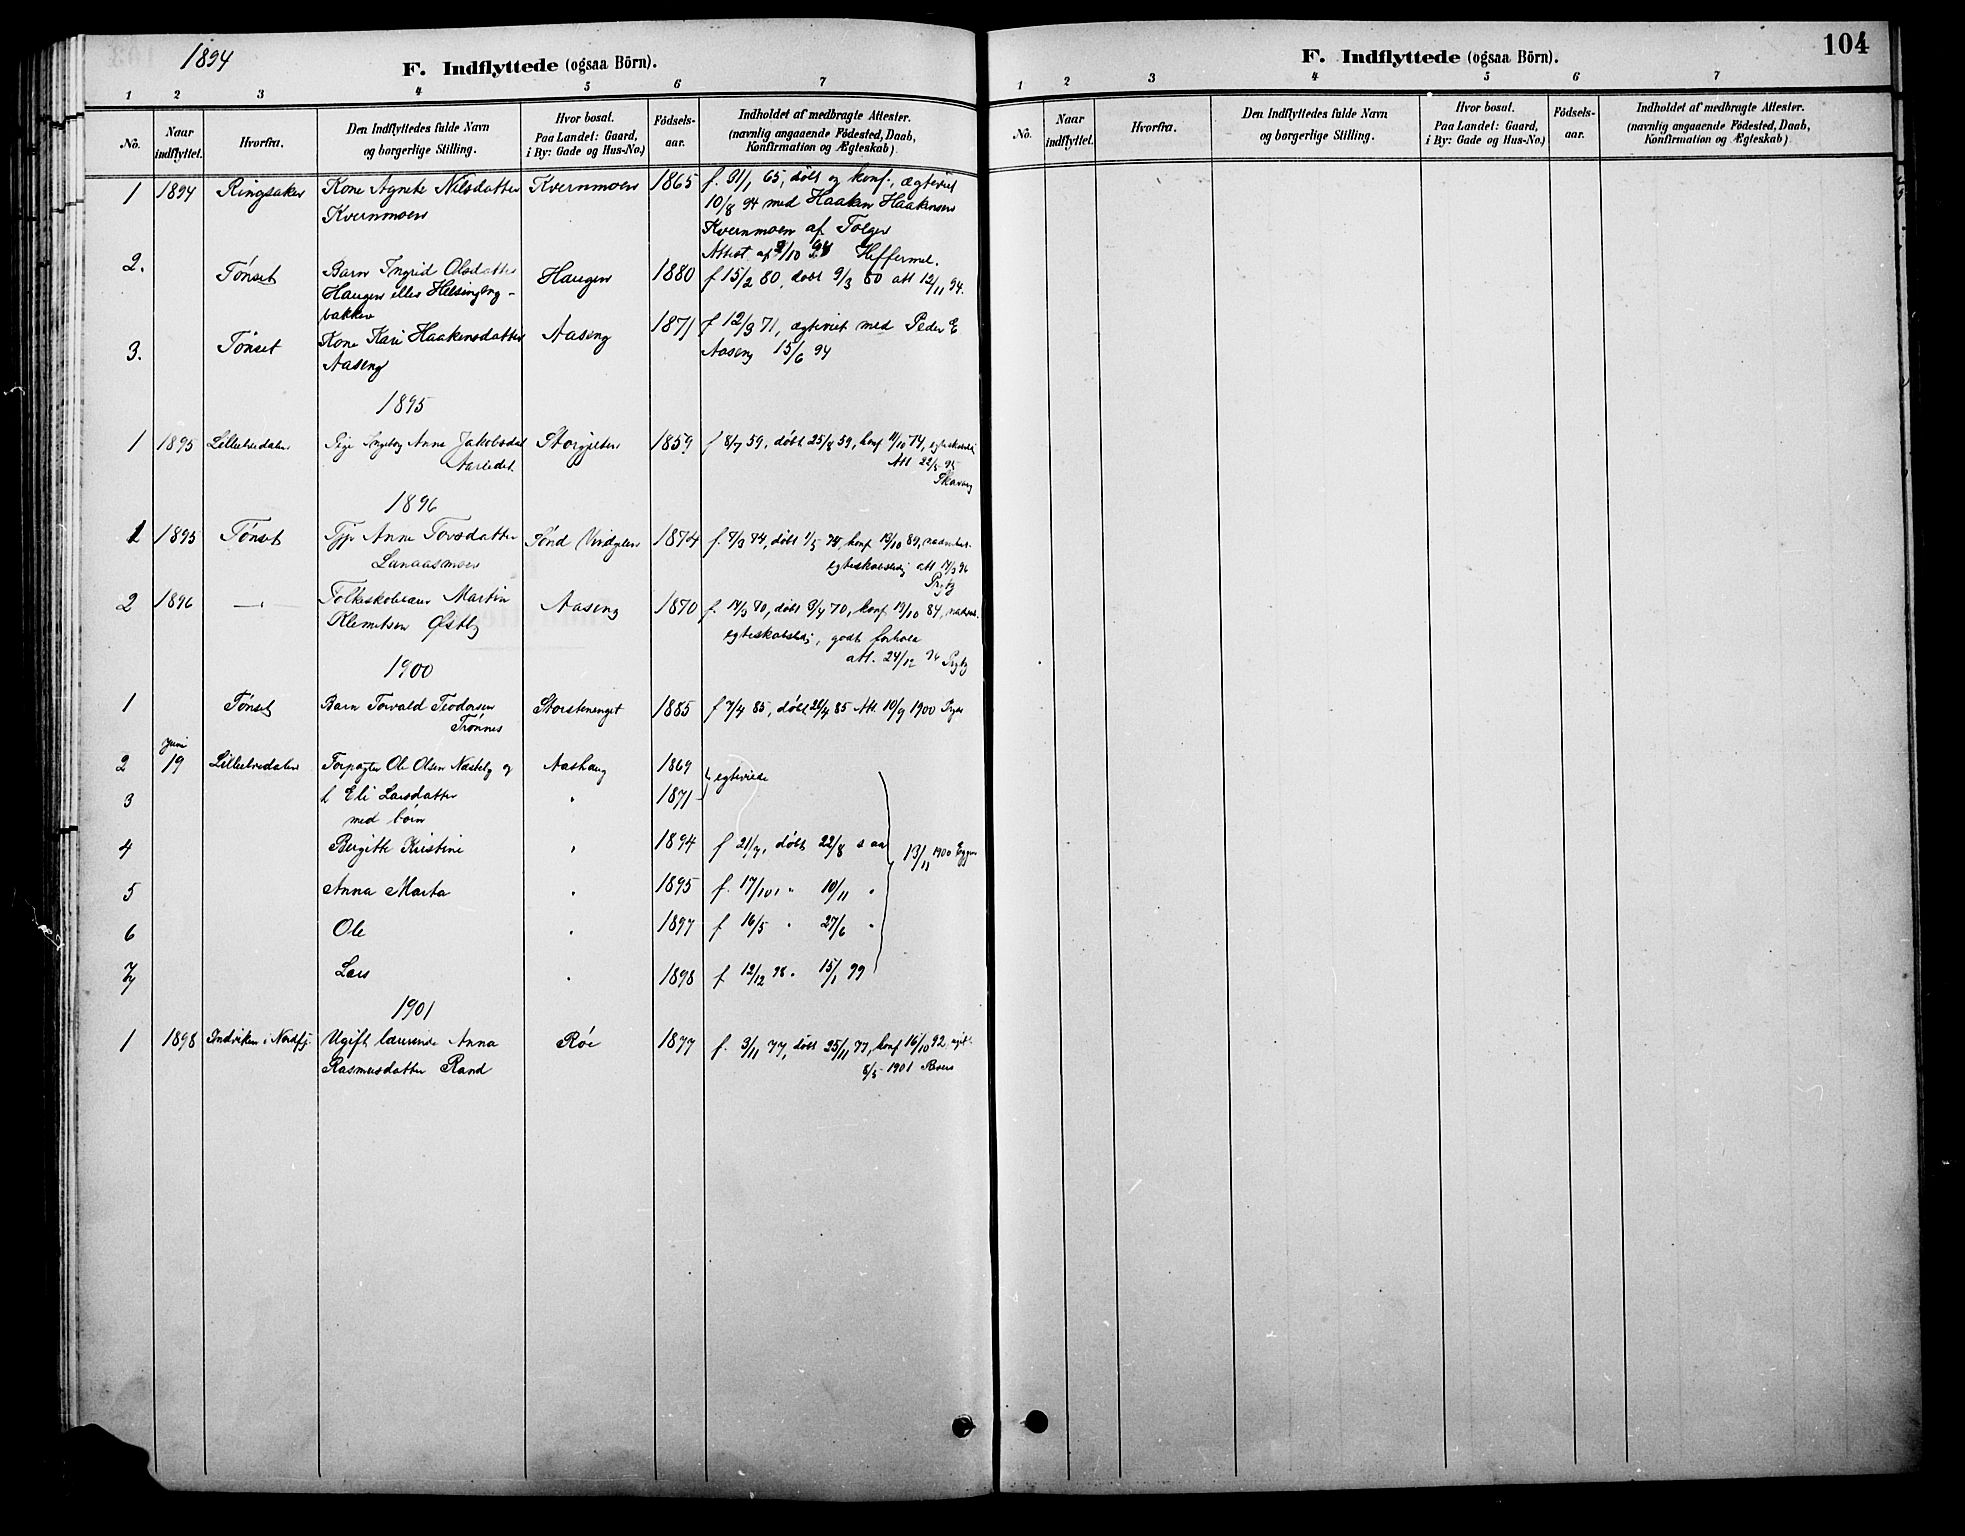 1894
F. Indflyttede (ogsaa Börn).
1 2 3 4 5 6 7
No.
Naar indflyttet.
Hvorfra.
Den Indflyttedes fulde Navn
og borgerlige Stilling.
Hvor bosat.
Paa Landet: Gaard,
i By: Gade og Hus-No.)
Födsels-
aar.
Indholdet af medbragte Attester.
(navnlig angaaende Födested, Daab,
Konfirmation og Ægteskab)
1 1894 Ringsaker Kone Agnete Nilsdatter Kvernmoen 1865 f. 31/1 65, döbt og konf., ægteviet
Kvernmoen 10/8 94 med Haaken Haakensen
Kvernmoen af Tolgen
Attest af 9/10 94
2. Tönset Barn Ingrid Olsdatter Haugen 1880 f 15/2 80, döbt 9/3 80 att 12/11 94.
Haugen eller
bakken
3. Tönset Kone Kari Haakensdatter Aaseng 1871 f 12/3 71, ægteviet med Peder E
Aaseng Aaseng 15/6 94
1895
1 1895 Lilleelvedalen Pige Ingeborg Anne Jakobsdat 1859 f 8/7 59, döbt 25/8 59, konf 11/10 74,
Att 22/5 95
1896
1 1895 Tönset Anne Torsdatter 1874 f. 7/3 74, döbt 1/5 74, konf 13/10 89,
egteskabsledig att 14/3 96
2 1896 — " — Folkeskolelærer Martin Aaseng 1870 f. 14/3 70, döbt 9/4 70, konf 19/10 84,
Klemetsen Østby egteskabsledig, godt forhold
att. 24/12 96
1900
1 Tönset Barn Torvald Teodorsen Storstenenget 1885 f 7/4 85, döbt 26/4 85 Att. 10/9 1900
Trönnes
2 Juni 19 Lilleelvedalen Forpagter Ole Olsen Næsteby og Aashaug 1869 egteviede
3 h Eli Larsdatter " 1871
med börn
4 Bergitte Kristine " 1894 f 21/7, döbt 22/8 s aa 13/11 1900
5 Anna Marta " 1895 f. 17/10, " 10/11 "
6 Ole " 1897 f 16/5 " 27/6 "
7 Lars " 1898 f 12/12 98 " 15/1 99
1901
1 1898 Indviken i Nordfj. Ugift lærerinde Anna Röe 1877 f. 3/11 77, döbt 25/11 77, konf 16/10 92, ugift
Rasmusdatter Rand 8/5 1901
104
F. Indflyttede (ogsaa Börn).
1 2 3 4 5 6 7
No.
Naar
indflyttet.
Hvorfra.
Den Indflyttedes fulde Navn
og borgerlige Stilling.
Hvor bosat.
Paa Landet: Gaard,
i By: Gade og Hus-No.)
Födsels-
aar.
Indholdet af medbragte Attester.
(navnlig angaaende Födested, Daab,
Konfirmation og Ægteskab)